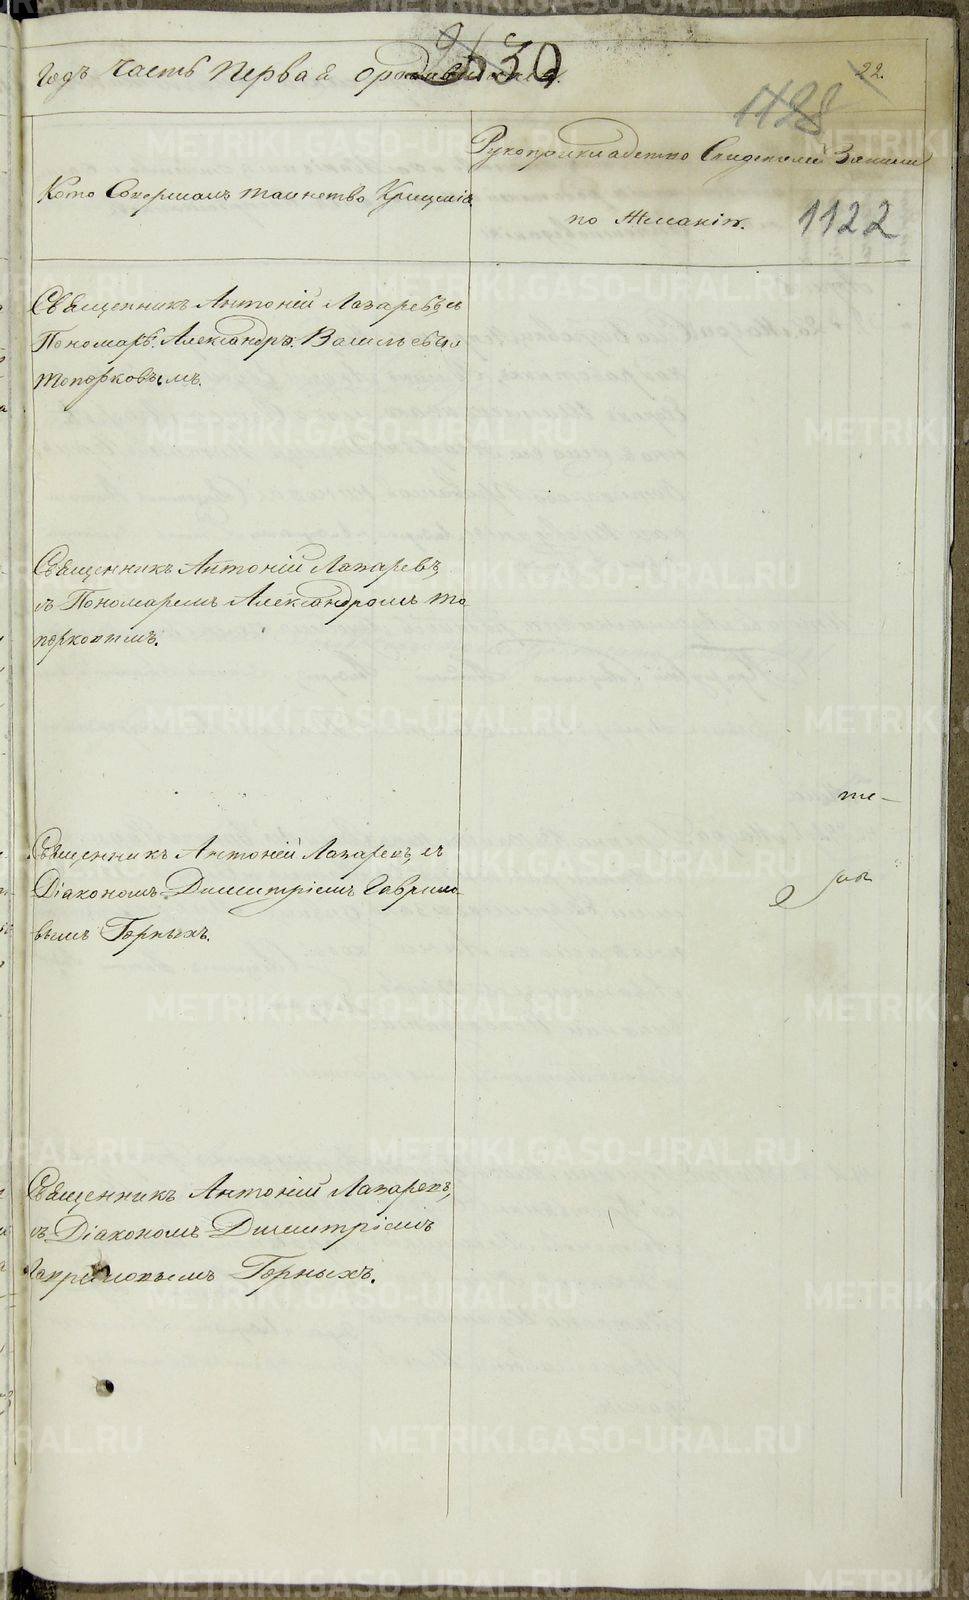 22.
630
Годъ Часть Первая о родившихся.
1128
Рукоприкладство Свидетелей Записи
Кто Совершалъ таинство Крещенія
по Желанію.
1122
Священникъ Антоній Лазаревъ съ
Пономарѣ: Александръ: Васильевым
Топорковымъ.
Священникъ Антоній Лазаревъ,
съ Пономаремъ Александромъ То
порковымъ.
Священникъ Антоній Лазаревъ, съ
Діакономъ Димитріемъ Гаврило-
вымъ Горныхъ.
Священникъ Антоній Лазаревъ,
съ Діакономъ Димитріемъ
Гавриловымъ Горныхъ.
METRIKI.GASO-URAL.RU